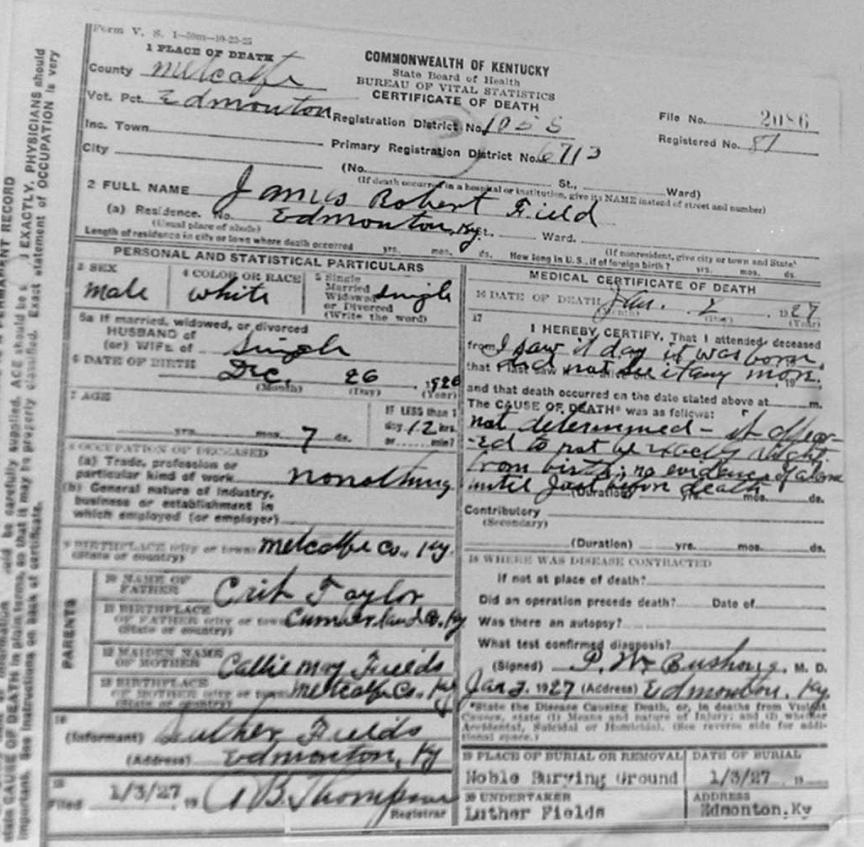 Form V. S. 1-50m-10-23-25
1 PLACE OF DEATH
County Metcalfe
Vot. Pct. Edmonton
Inc. Town
City
COMMONWEALTH OF KENTUCKY
State Board of Health
BUREAU OF VITAL STATISTICS
CERTIFICATE OF DEATH
Registration District No. 1055
Primary Registration District No. 6713
File No. 2086
Registered No. 81
(No. St., Ward)
(If death occurred in a hospital or institution, give its NAME instead of street and number)
2 FULL NAME James Robert Field
(a) Residence. No. Edmonton, Ky. St. Ward.
(Usual place of abode) (If nonresident, give city or town and State)
Length of residence in city or town where death occurred yrs. mos. ds. How long in U. S., if of foreign birth? yrs. mos. ds.
PERSONAL AND STATISTICAL PARTICULARS
3 SEX
male
4 COLOR OR RACE
white
5 Single
Married
Widowed
or Divorced
(Write the word)
single
5a If married, widowed, or divorced
HUSBAND of
(or) WIFE of Single
6 DATE OF BIRTH Dec. 26, 1926
(Month) (Day) (Year)
7 AGE
yrs. mos. 7 ds.
IF LESS than 1
day, 12 hrs.
or min?
8 OCCUPATION OF DECEASED
(a) Trade, profession or
particular kind of work
(b) General nature of industry,
business or establishment in
which employed (or employer)
9 BIRTHPLACE (city or town) Metcalfe Co., Ky.
(State or country)
PARENTS
10 NAME OF
FATHER Crit Taylor
11 BIRTHPLACE
OF FATHER (city or town) Cumberland Co. Ky
(State or country)
12 MAIDEN NAME
OF MOTHER Callie May Fields
13 BIRTHPLACE
OF MOTHER (city or town) Metcalfe Co. Ky
(State or country)
14
(Informant) Luther Fields
(Address) Edmonton, Ky
15
Filed 1/3/27 19 A B Thompson
Registrar
MEDICAL CERTIFICATE OF DEATH
16 DATE OF DEATH Jan. 2 1927
(Month) (Day) (Year)
17
I HEREBY CERTIFY, That I attended deceased
from I saw it day it was born,
did not see it any more.
and that death occurred on the date stated above at m.
The CAUSE OF DEATH* was as follows:
not determined - it appear-
-ed to not be exactly right
from birth; no evidence of alarm
until just before death
(Duration) yrs. mos. ds.
Contributory
(Secondary)
(Duration) yrs. mos. ds.
18 WHERE WAS DISEASE CONTRACTED
If not at place of death?
Did an operation precede death? Date of
Was there an autopsy?
What test confirmed diagnosis?
(Signed) P. W. Bushong, M. D.
Jan 3, 1927 (Address) Edmonton, Ky
*State the Disease Causing Death, or, in deaths from Violent
Causes, state (1) Means and nature of Injury; and (2) whether
Accidental, Suicidal or Homicidal. (See reverse side for addi-
tional space.)
19 PLACE OF BURIAL OR REMOVAL
Noble Burying Ground
DATE OF BURIAL
1/3/27 19
20 UNDERTAKER
Luther Fields
ADDRESS
Edmonton, Ky